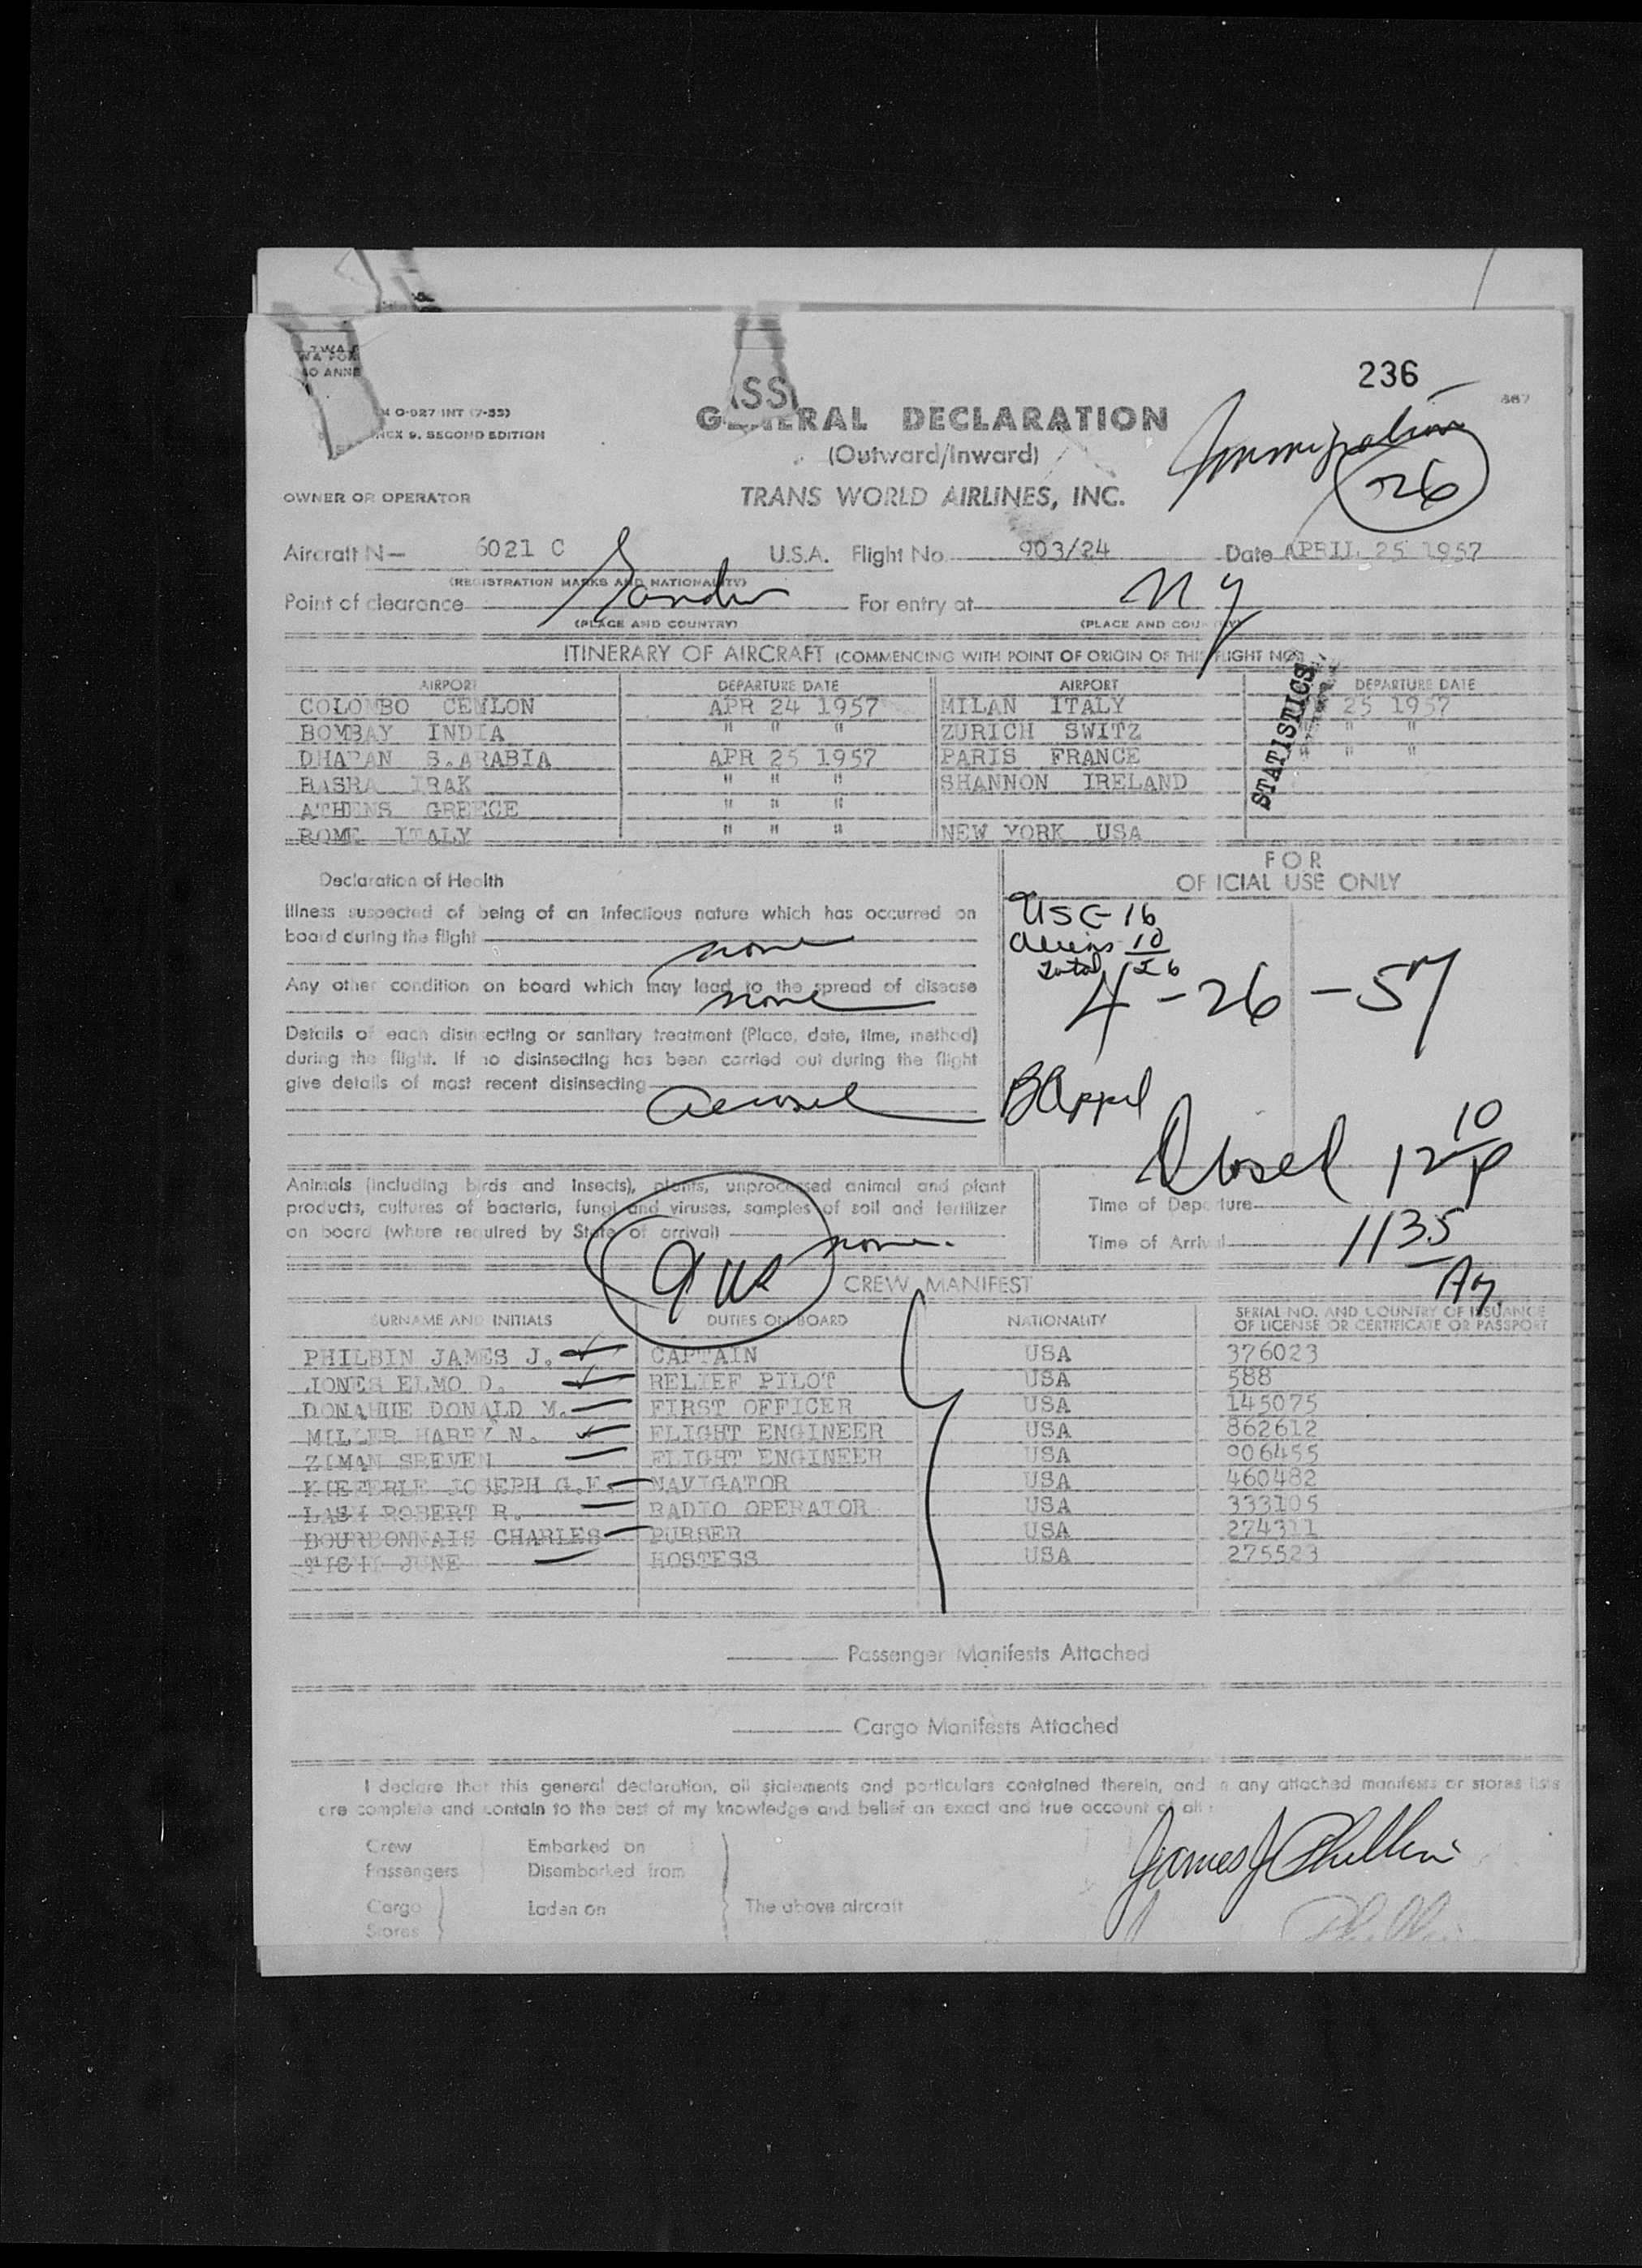 236
TWA
SS
M O-927 INT (7-53)
NEX 9, SECOND EDITION
GENERAL DECLARATION
(Outward/Inward)
Immigration
26
OWNER OR OPERATOR TRANS WORLD AIRLINES, INC.
Aircraft N— 6021 C U.S.A. Flight No. 903/24 Date APRIL 25 1957
(REGISTRATION MARKS AND NATIONALITY)
Point of clearance Gander For entry at NY
(PLACE AND COUNTRY) (PLACE AND COUNTRY)
ITINERARY OF AIRCRAFT (COMMENCING WITH POINT OF ORIGIN OF THIS FLIGHT NO.)
AIRPORT DEPARTURE DATE AIRPORT DEPARTURE DATE
COLOMBO CEYLON APR 24 1957 MILAN ITALY 25 1957
BOMBAY INDIA " " " ZURICH SWITZ " "
DHARAN S.ARABIA APR 25 1957 PARIS FRANCE " " "
BASRA IRAK " " " SHANNON IRELAND
ATHENS GREECE " " "
ROME ITALY " " " NEW YORK USA
STATISTICS
Declaration of Health
FOR
OFFICIAL USE ONLY
Illness suspected of being of an infectious nature which has occurred on
board during the flight none
Any other condition on board which may lead to the spread of disease
none
Details of each disinsecting or sanitary treatment (Place, date, time, method)
during the flight. If no disinsecting has been carried out during the flight
give details of most recent disinsecting
aerosol
USC-16
Aliens 10
Total 26
4-26-57
B Appel
Closed 12 10 P
Animals (including birds and insects), plants, unprocessed animal and plant
products, cultures of bacteria, fungi and viruses, samples of soil and fertilizer
on board (where required by State of arrival) none.
Time of Departure
Time of Arrival 1135
CREW MANIFEST
SURNAME AND INITIALS DUTIES ON BOARD NATIONALITY SERIAL NO. AND COUNTRY OF ISSUANCE
OF LICENSE OR CERTIFICATE OR PASSPORT
PHILBIN JAMES J. CAPTAIN USA 376023
JONES ELMO D. RELIEF PILOT USA 588
DONAHUE DONALD M. FIRST OFFICER USA 145075
MILLER HARRY N. FLIGHT ENGINEER USA 862612
ZIMAN SREVEN FLIGHT ENGINEER USA 906455
KIEFERLE JOSEPH G.F. NAVIGATOR USA 460482
LASH ROBERT R. RADIO OPERATOR USA 333105
BOURBONNAIS CHARLES PURSER USA 274311
JUNE HOSTESS USA 275523
Passenger Manifests Attached
Cargo Manifests Attached
I declare that this general declaration, all statements and particulars contained therein, and in any attached manifests or stores lists
are complete and contain to the best of my knowledge and belief an exact and true account of all:
Crew Embarked on
Passengers Disembarked from
Cargo Laden on The above aircraft
Stores
James J Philbin